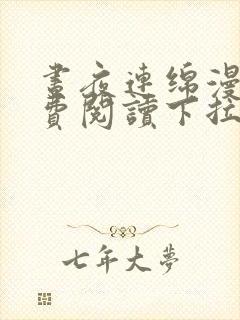 畫夜連綿漫
費閱讀下拉
七年大夢